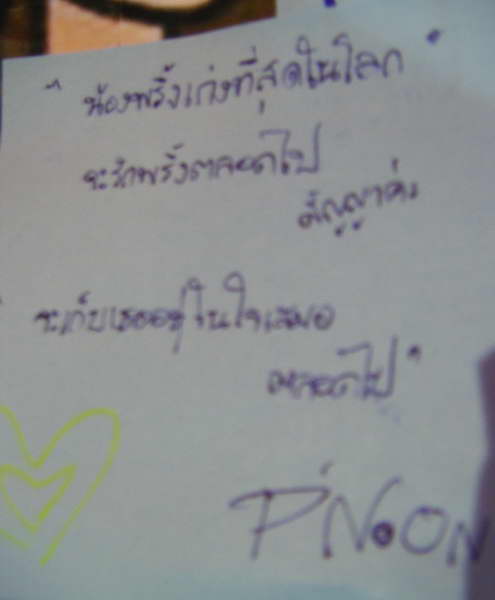 " น้องพริ้งเก่งที่สุดในโลก "
จะรักพริ้งตลอดไป
สัญญาค่ะ
" จะเก็บเธออยู่ในใจเสมอ
ตลอดไป "
P'NOON